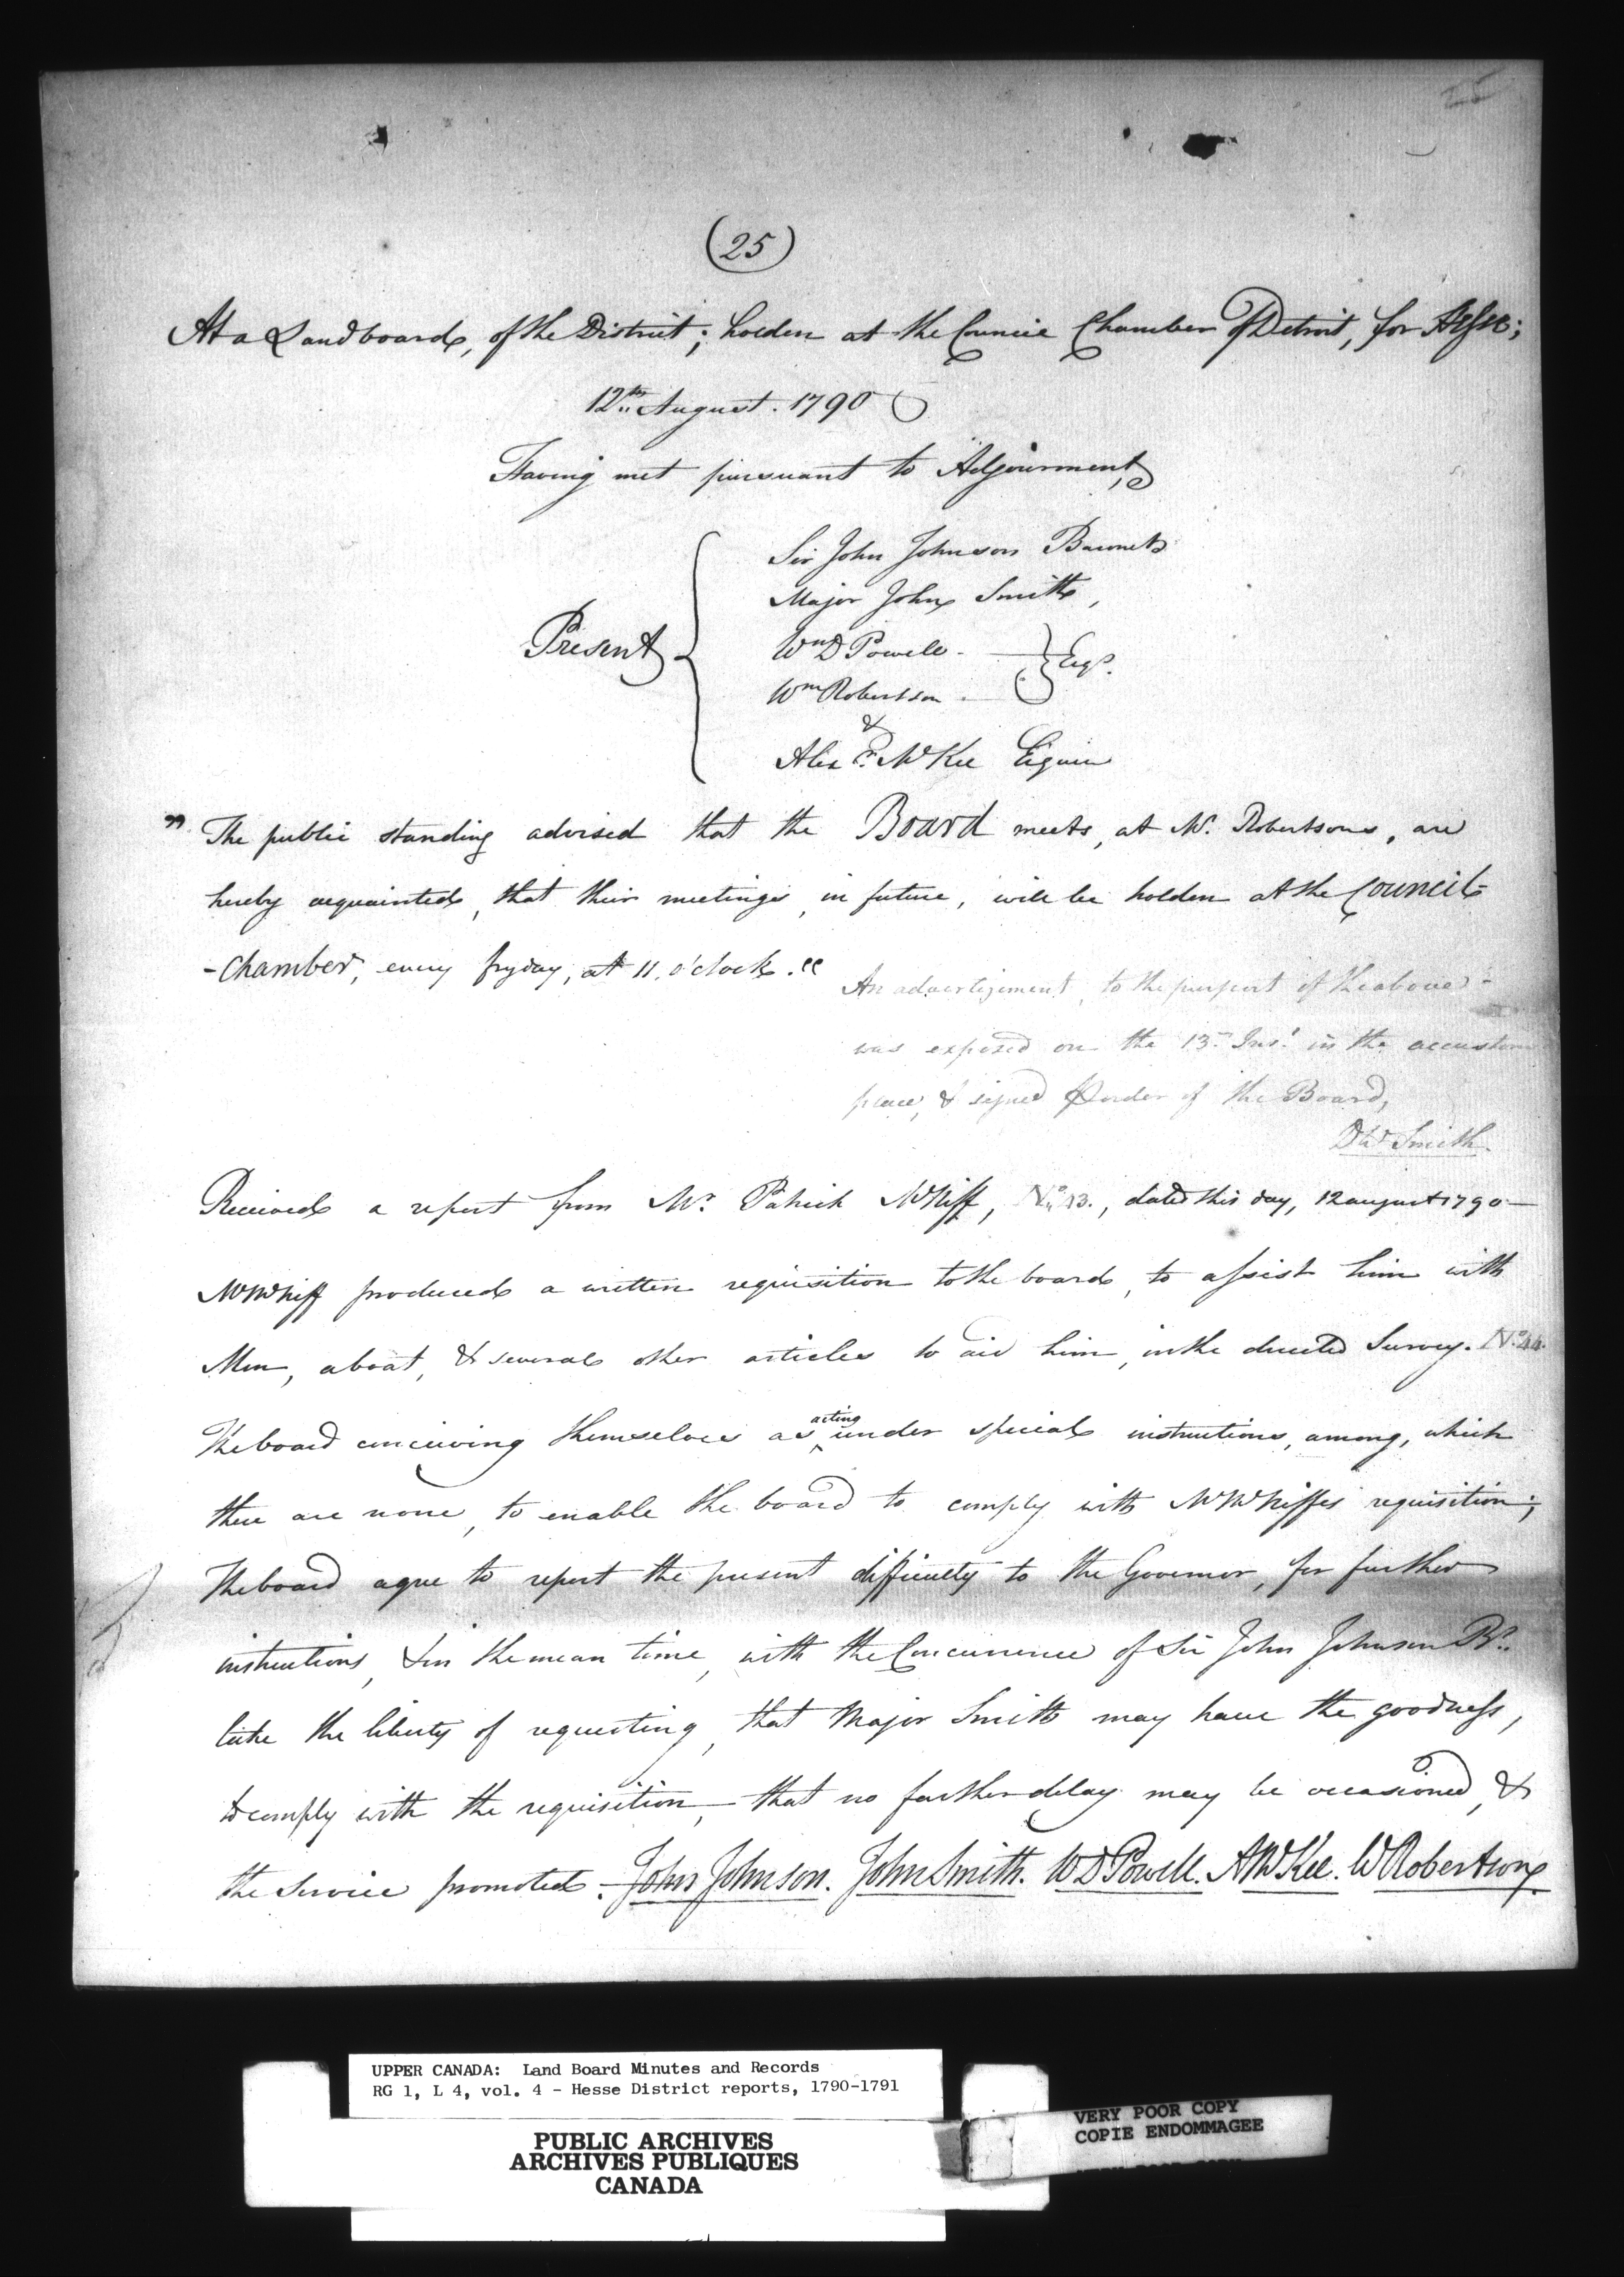 25
(25)
At a Landboard, of the District; holden at the Council Chamber of Detroit, for Hesse;
12th August. 1790
Having met pursuant to Adjournment,
Sir John Johnson Baronet
Major John Smith,
Present
Wm D Powell - Esqs.
Wm Robertson -
&
Alexr. McKee Esquire
" The public standing advised that the Board meets, at Mr. Robertsons, are
hereby acquainted, that their meetings, in future, will be holden at the Council-
-Chamber, every fryday, at 11, o'clock."
An advertizement, to the purport of the above -
was exposed on the 13th Inst. in the accustom
place, & signed P order of the Board,
Smith.
Received a report from Mr. Patrick McNiff, No. 13., dated this day, 12 august 1790 -
Mr McNiff produced a written requisition to the board, to assist him with
Men, a boat, & several other articles to aid him, in the directed Survey. No. 14.
The board conceiving themselves as acting under special instructions, among, which
there are none, to enable the board to comply with Mr McNiffs requisition;
The board agree to report the present difficulty to the Governor, for further
instructions, & in the mean time, with the Concurrence of Sir John Johnson Bt.
take the liberty of requesting, that Major Smith may have the goodness,
to comply with the requisition, that no further delay may be occasioned, &
the Service promoted. John Johnson. John Smith. W D Powell. A McKee. W Robertson
UPPER CANADA: Land Board Minutes and Records
RG 1, L 4, vol. 4 - Hesse District reports, 1790-1791
PUBLIC ARCHIVES
ARCHIVES PUBLIQUES
CANADA
VERY POOR COPY
COPIE ENDOMMAGEE